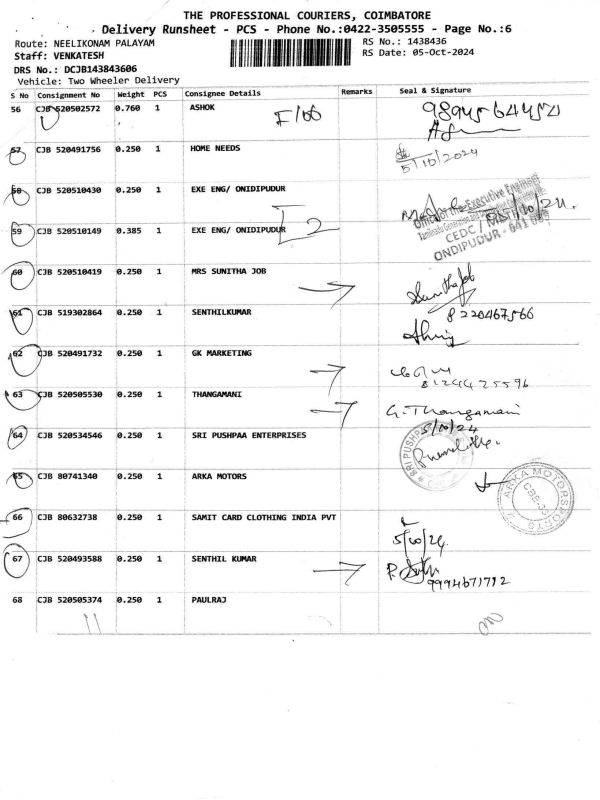 THE PROFESSIONAL COURIERS, COIMBATORE
Delivery Runsheet - PCS - Phone No.:0422-3505555 - Page No.:6
Route: NEELIKONAM PALAYAM RS No.: 1438436
Staff: VENKATESH RS Date: 05-Oct-2024
DRS No.: DCJB143843606
Vehicle: Two Wheeler Delivery
S No Consignment No Weight PCS Consignee Details Remarks Seal & Signature
56 CJB 520502572 0.760 1 ASHOK
57 CJB 520491756 0.250 1 HOME NEEDS
5/10/2024
58 CJB 520510430 0.250 1 EXE ENG/ ONIDIPUDUR
Office of the Executive Engineer
59 CJB 520510149 0.385 1 EXE ENG/ ONIDIPUDUR 2
CEDC /
ONDIPUDUR - 641
60 CJB 520510419 0.250 1 MRS SUNITHA JOB
Sunitha Job
61 CJB 519302864 0.250 1 SENTHILKUMAR 8220467566
62 CJB 520491732 0.250 1 GK MARKETING
8124425596
63 CJB 520505530 0.250 1 THANGAMANI G. Thangamani
5/10/24
64 CJB 520534546 0.250 1 SRI PUSHPAA ENTERPRISES
SRI PUSHP
65 CJB 80741340 0.250 1 ARKA MOTORS
ARKA MOTORSPORTS
66 CJB 80632738 0.250 1 SAMIT CARD CLOTHING INDIA PVT
5/10/24
67 CJB 520493588 0.250 1 SENTHIL KUMAR
9994671712
68 CJB 520505374 0.250 1 PAULRAJ